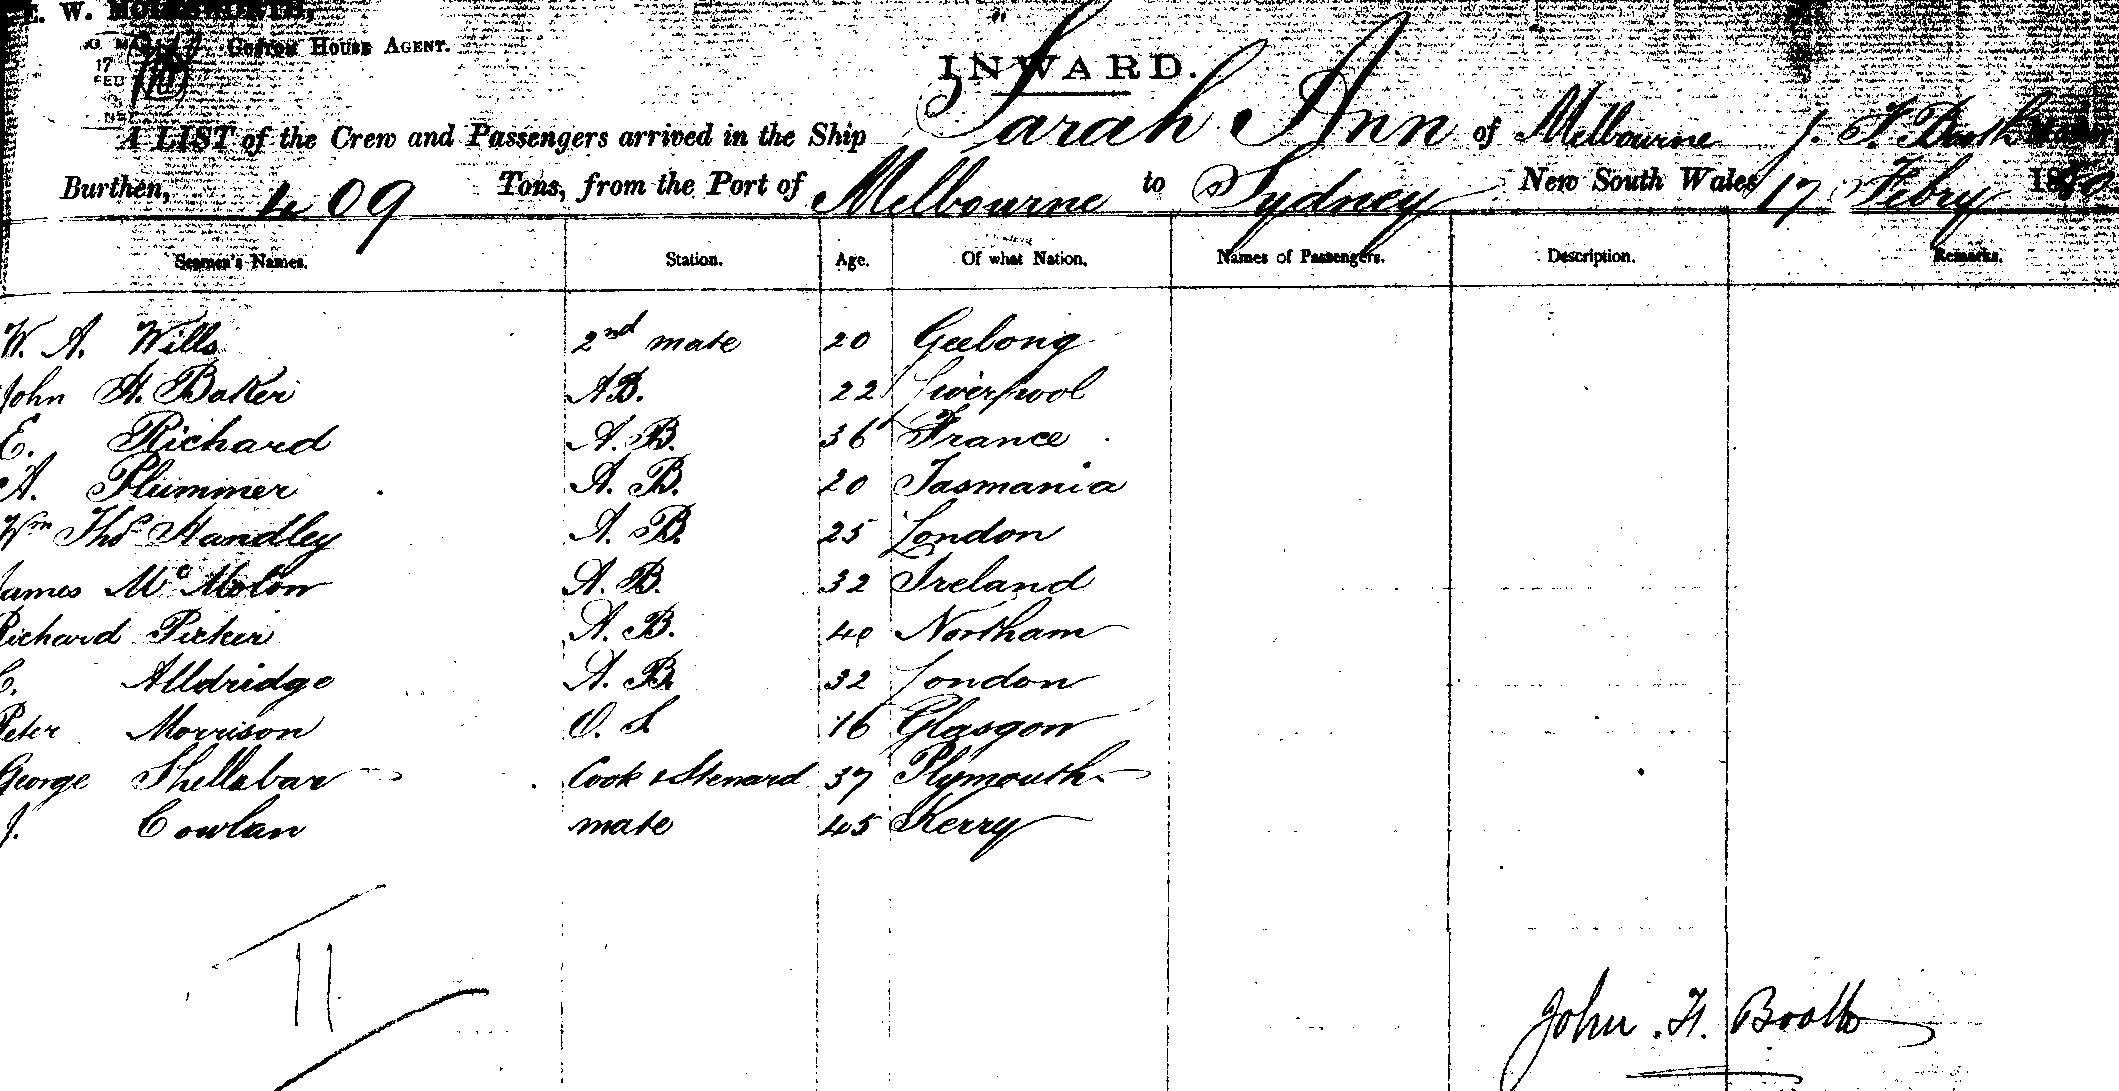 E. W. MOLESWORTH,
CUSTOM HOUSE AGENT.
17
FEB
INWARD.
A LIST of the Crew and Passengers arrived in the Ship Sarah Ann of Melbourne J. F. Booth Master,
Burthen, 409 Tons, from the Port of Melbourne to Sydney New South Wales 17 Febry
Seamen's Names. Station. Age. Of what Nation. Names of Passengers. Description. Remarks.
W. A. Wills 2nd mate 20 Geelong
John A. Baker A.B. 22 Liverpool
E. Richard A. B. 36 France
A. Plummer A. B. 20 Tasmania
Wm Thos Handley A. B. 25 London
James Mc A. B. 32 Ireland
Richard Picker A. B. 40 Northam
C. Alldridge A. B. 32 London
Peter Morrison O. S. 16 Glasgow
George Shellabar Cook & Steward 37 Plymouth
J. Cowlan mate 45 Kerry
11
John F. Booth